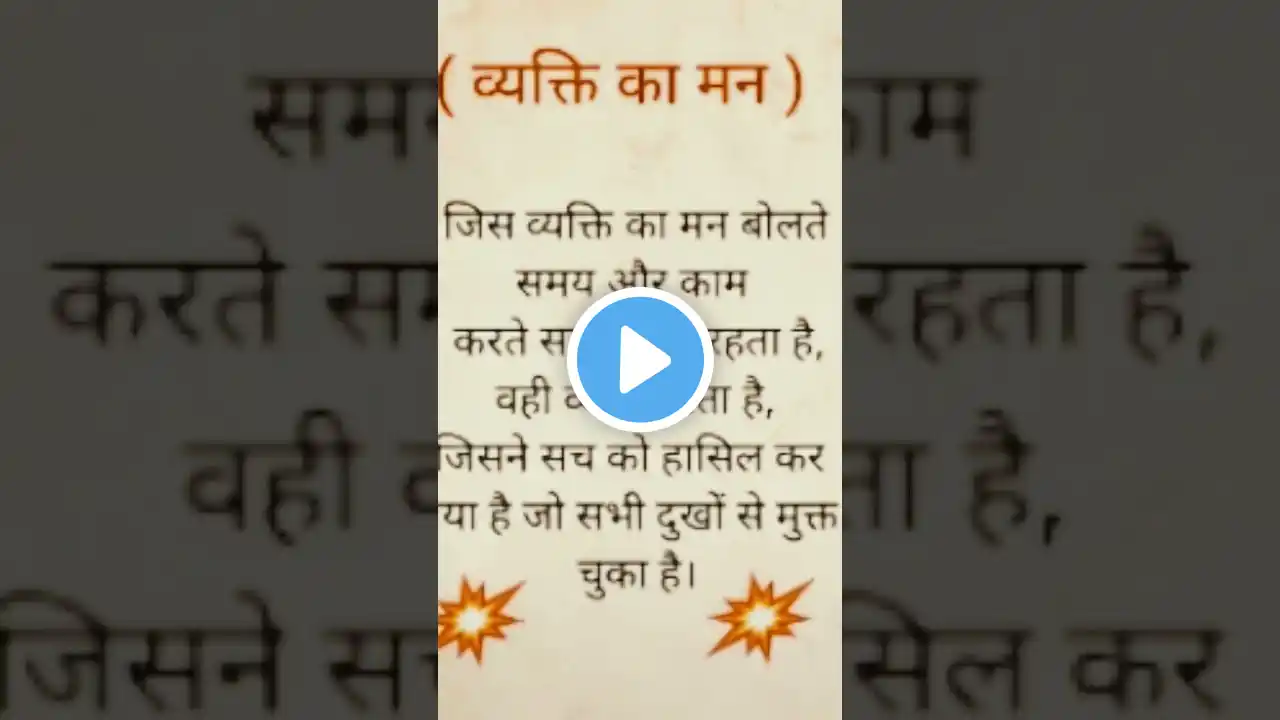 ( व्यक्ति का मन )
जिस व्यक्ति का मन बोलते
समय और काम
करते रहता है,
वही है,
जिसने सच को हासिल कर
या है जो सभी दुखों से मुक्त
चुका है।